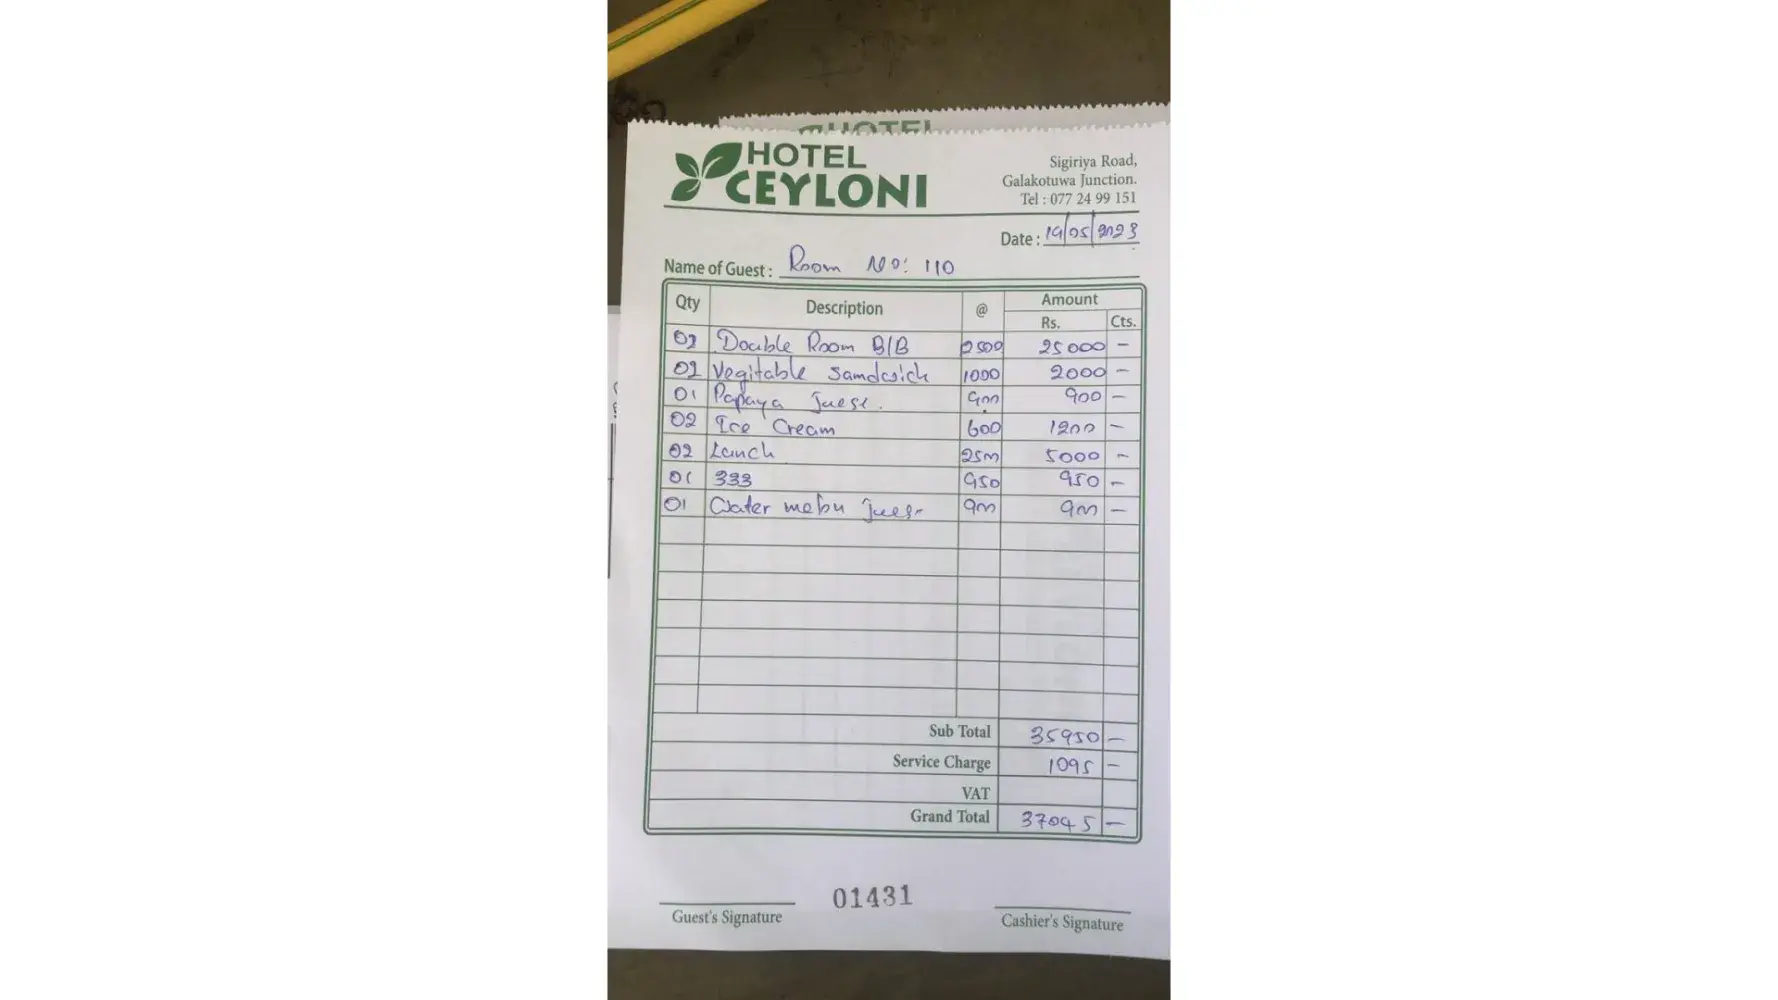 HOTEL
HOTEL
CEYLONI
Sigiriya Road,
Galakotuwa Junction.
Tel : 077 24 99 151
Date : 19/05/2023
Name of Guest : Room No: 110
Qty Description @ Amount
Rs. Cts.
02 Double Room B/B 12500 25000 -
02 Vegitable Samdwich 1000 2000 -
01 Papaya Juese. 900 900 -
02 Ice Cream 600 1200 -
02 Lunch 2500 5000 -
01 333 950 950 -
01 Water melon Juese 900 900 -
Sub Total 35950 -
Service Charge 1095 -
VAT
Grand Total 37045 -
01431
Guest's Signature Cashier's Signature